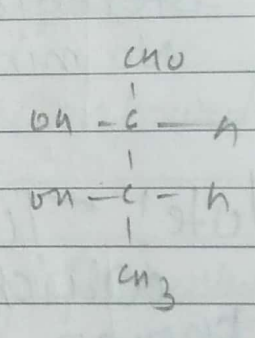 CHO
OH - C - H
OH - C - H
CH3